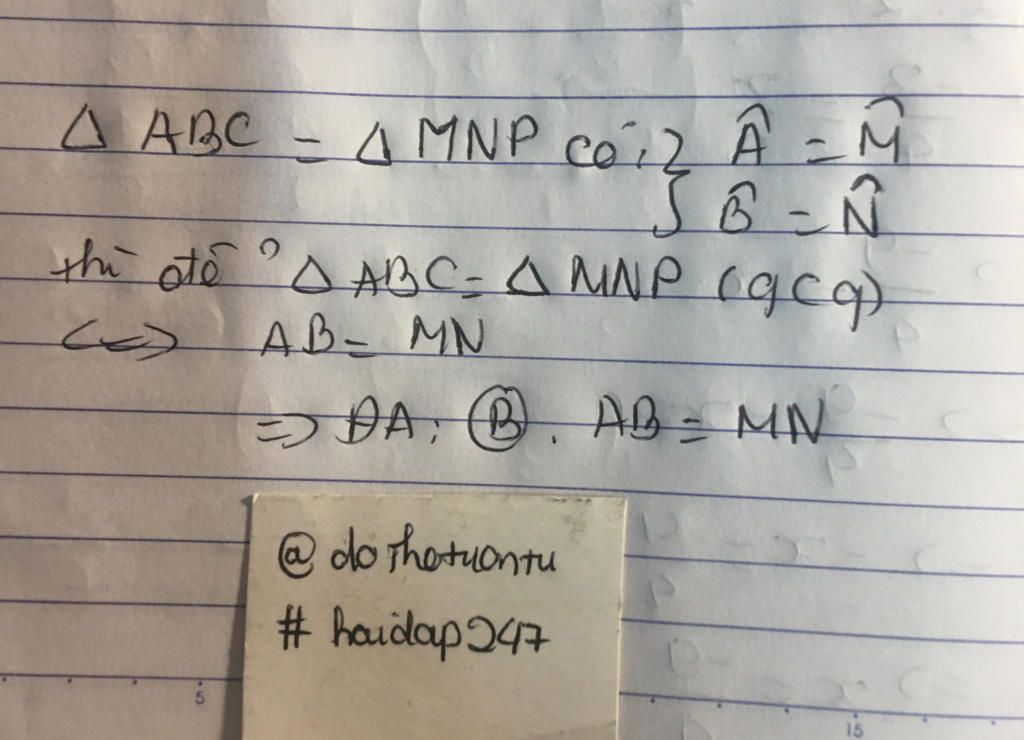 Δ ABC = Δ MNP có: } Â = M̂
} B̂ = N̂
thì để Δ ABC = Δ MNP (gcg)
<=> AB = MN
=> ĐA: Ⓑ. AB = MN
@ dothetuantu
# hoidap247
5
15